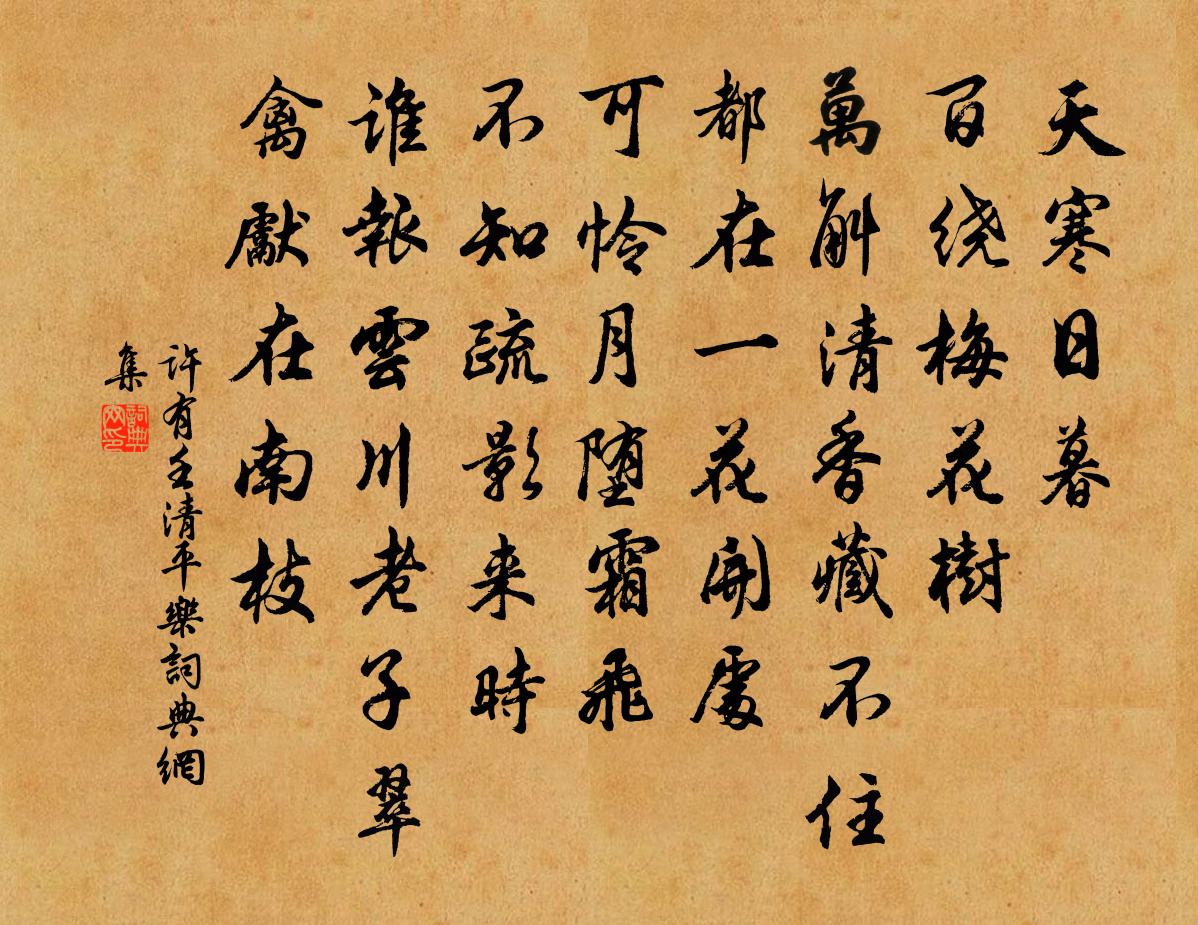 天寒日暮
百绕梅花樹
萬斛清香藏不住
都在一花開處
可怜月堕霜飛
不知疏影来時
誰報雲川老子翠
禽獻在南枝
許有壬清平樂詞典網
集
詞典網印